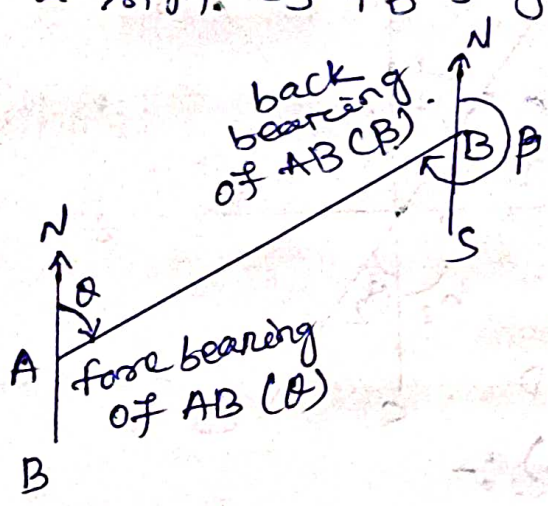 N
back
bearing
of AB (β)
B
β
S
N
θ
A
fore bearing
of AB (θ)
B